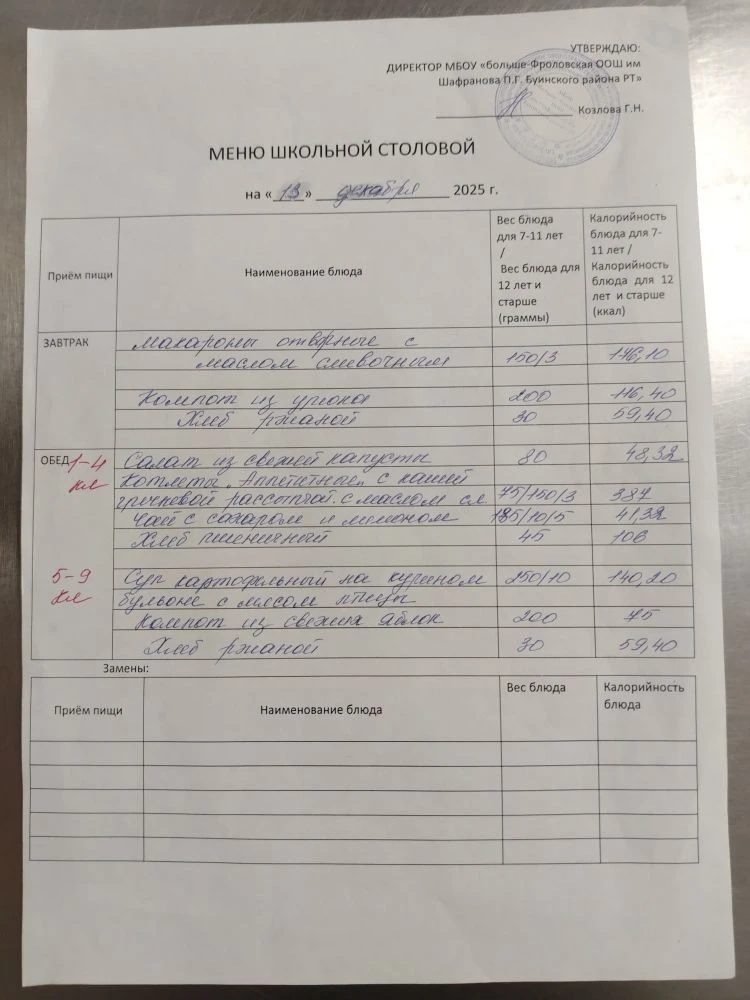 УТВЕРЖДАЮ:
ДИРЕКТОР МБОУ «больше-Фроловская ООШ им
Шафранова П.Г. Буинского района РТ»
Козлова Г.Н.
МЕНЮ ШКОЛЬНОЙ СТОЛОВОЙ
на «13» декабря 2025 г.
Приём пищи
Наименование блюда
Вес блюда
для 7-11 лет
/
Вес блюда для
12 лет и
старше
(граммы)
Калорийность
блюда для 7-
11 лет /
Калорийность
блюда для 12
лет и старше
(ккал)
ЗАВТРАК
Макароны отврные с
маслом сливочным 150/3 176,10
Компот из урюка 200 116,40
Хлеб ржаной 30 59,40
ОБЕД 1-4 Салат из свежей капусты 80 48,32
кл Котлеты „Аппетитные„ с кашей
гречневой рассыпчат. с маслом сл. 75/150/3 387
Чай с сахаром и лимоном 185/10/5 41,32
Хлеб пшеничный 45 106
5-9 Суп картофельный на курином 250/10 140,20
кл бульоне с мясом птицы
Компот из свежих яблок 200 75
Хлеб ржаной 30 59,40
Замены:
Приём пищи
Наименование блюда
Вес блюда
Калорийность
блюда